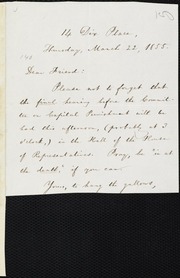 14 Dix Place,
Thursday, March 22, 1855.
Dear Friend:
Please not to forget that
the final hearing before the Commit-
tee on Capital Punishment will be
had this afternoon, (probably at 3
o'clock,) in the Hall of the House
of Representatives. Pray, be "in at
the death," if you can.
Yours, to hang the gallows,